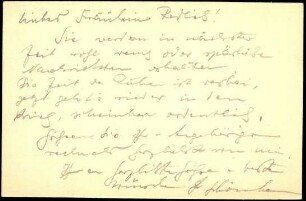 Liebes Fräulein Redlich!
Sie werden in nächster
Zeit wohl wenig oder spärliche
Nachrichten erhalten
Die Zeit der Ruhe ist vorbei,
jetzt geht's wieder in den
Krieg, scheinbar ordentlich.
Grüssen Sie Ihre Angehörigen
recht herzlichst von mir.
Ihnen herzlichste Grüsse